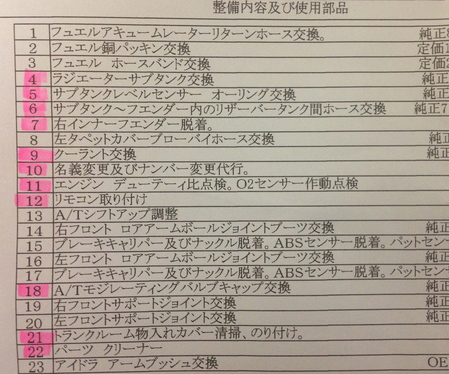 整備内容及び使用部品
1 フュエルアキュームレーターリターンホース交換。 純正
2 フュエル銅パッキン交換 定価1
3 フュエル ホースバンド交換 定価
4 ラジエーターサブタンク交換 純正
5 サブタンクレベルセンサー オーリング交換 純正
6 サブタンク～フエンダー内のリザーバータンク間ホース交換 純正7
7 右インナーフエンダー脱着。
8 左タペットカバーブローバイホース交換 純正
9 クーラント交換 純正
10 名義変更及びナンバー変更代行。
11 エンジン デューティ比点検。O2センサー作動点検
12 リモコン取り付け
13 A/Tシフトアップ調整
14 右フロント ロアアームボールジョイントブーツ交換 純正
15 ブレーキキャリパー及びナックル脱着。ABSセンサー脱着。パットセン
16 左フロント ロアアームボールジョイントブーツ交換 純正
17 ブレーキキャリパー及びナックル脱着。ABSセンサー脱着。パットセン
18 A/Tモジレーティングバルブキャップ交換 純正
19 右フロントサポートジョイント交換 純正
20 左フロントサポートジョイント交換 純正
21 トランクルーム物入れカバー清掃、のり付け。
22 パーツ クリーナー
23 アイドラ アームブッシュ交換 OE